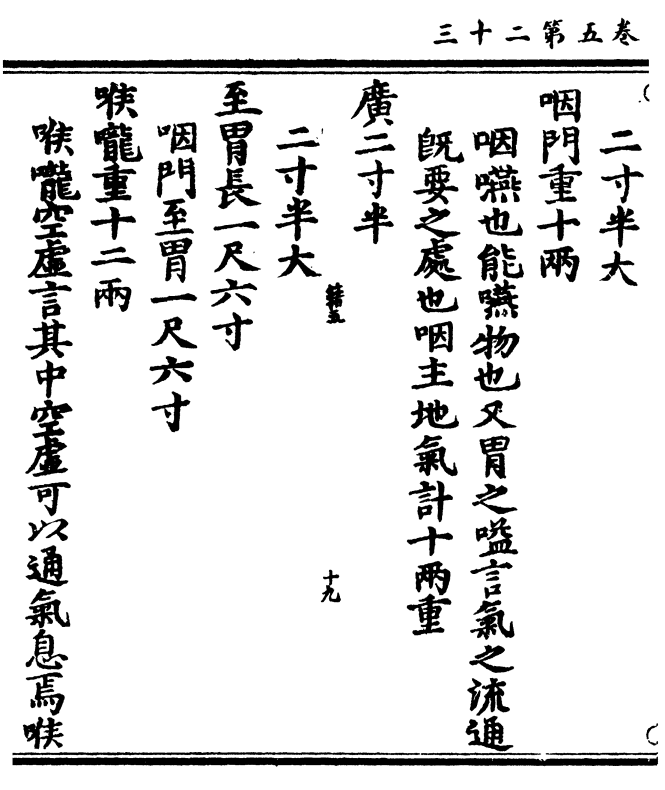 卷五第二十三
二寸半大
咽門重十兩
咽嚥也能嚥物也又胃之嗌言氣之流通
既要之處也咽主地氣計十兩重
廣二寸半
籍五
十九
二寸半大
至胃長一尺六寸
咽門至胃一尺六寸
喉嚨重十二兩
喉嚨空虛言其中空虛可以通氣息焉喉